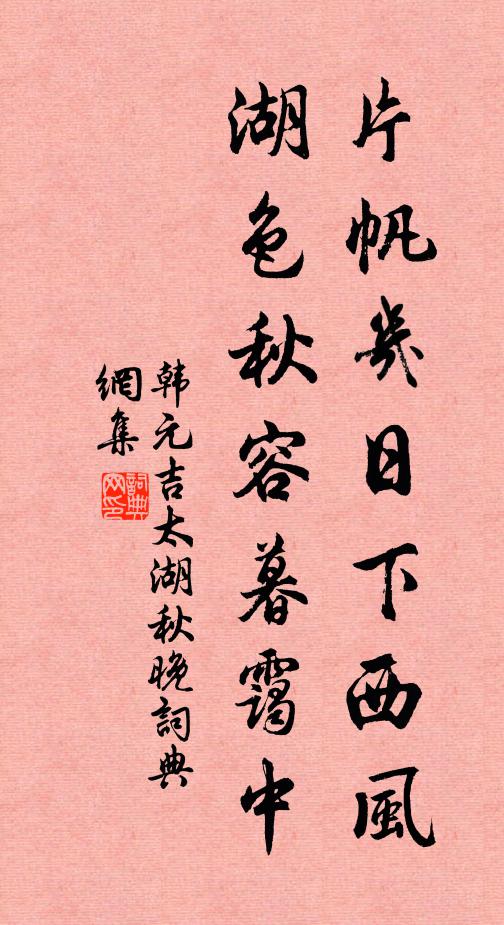 片帆幾日下西風
湖色秋容暮靄中
韩元吉太湖秋晚詞典
網集
詞典
网印